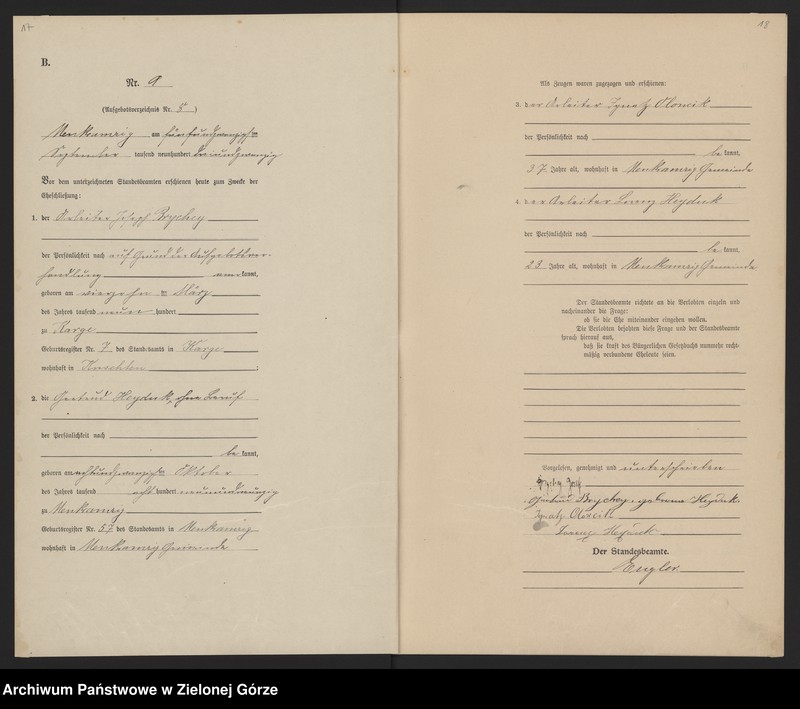 17
B.
Nr. 9
(Aufgebotsverzeichnis Nr. 8)
Neukramzig am fünfundzwanzigsten
September tausend neunhundert dreiundzwanzig
Vor dem unterzeichneten Standesbeamten erschienen heute zum Zwecke der
Eheschließung:
1. der Arbeiter Josef Brychcy
der Persönlichkeit nach auf Grund der Aufgebotsver-
handlung anerkannt,
geboren am vierzehn ten März
des Jahres tausend neun hundert
zu Karge
Geburtsregister Nr. 7 des Standesamts in Karge
wohnhaft in ;
2. die Gertrud Heyduk, ohne Beruf
der Persönlichkeit nach
be kannt,
geboren am achtundzwanzigsten Oktober
des Jahres tausend acht hundert neunundneunzig
zu Neukramzig
Geburtsregister Nr. 37 des Standesamts in Neukramzig
wohnhaft in Neukramzig Gemeinde
18
Als Zeugen waren zugezogen und erschienen:
3. der Arbeiter Ignatz
der Persönlichkeit nach
be kannt,
27 Jahre alt, wohnhaft in Neukramzig Gemeinde
4. der Arbeiter Franz Heyduk
der Persönlichkeit nach
be kannt,
23 Jahre alt, wohnhaft in Neukramzig Gemeinde
Der Standesbeamte richtete an die Verlobten einzeln und
nacheinander die Frage:
ob sie die Ehe miteinander eingehen wollen.
Die Verlobten bejahten diese Frage und der Standesbeamte
sprach hierauf aus,
daß sie kraft des Bürgerlichen Gesetzbuchs nunmehr recht-
mäßig verbundene Eheleute seien.
Vorgelesen, genehmigt und unterschrieben
Brychcy Josef
Gertrud Brychcy, geborene Heyduk
Ignatz
Franz Heyduk
Der Standesbeamte.
Engler
Archiwum Państwowe w Zielonej Górze